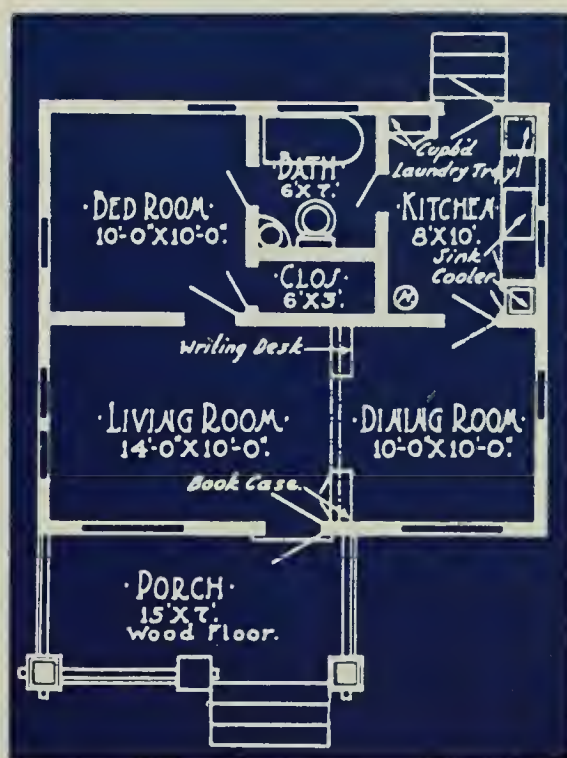 Cupb'd
Laundry Tray
·BATH·
6'X7'.
·BED ROOM·
10'-0"X10'-0".
·KITCHEN·
8'X10'.
Sink
Cooler.
·CLOS·
6'X3'.
Writing Desk
·LIVING ROOM·
14'-0"X10'-0".
·DINING ROOM·
10'-0"X10'-0".
Book Case.
·PORCH·
15'X7'.
Wood Floor.